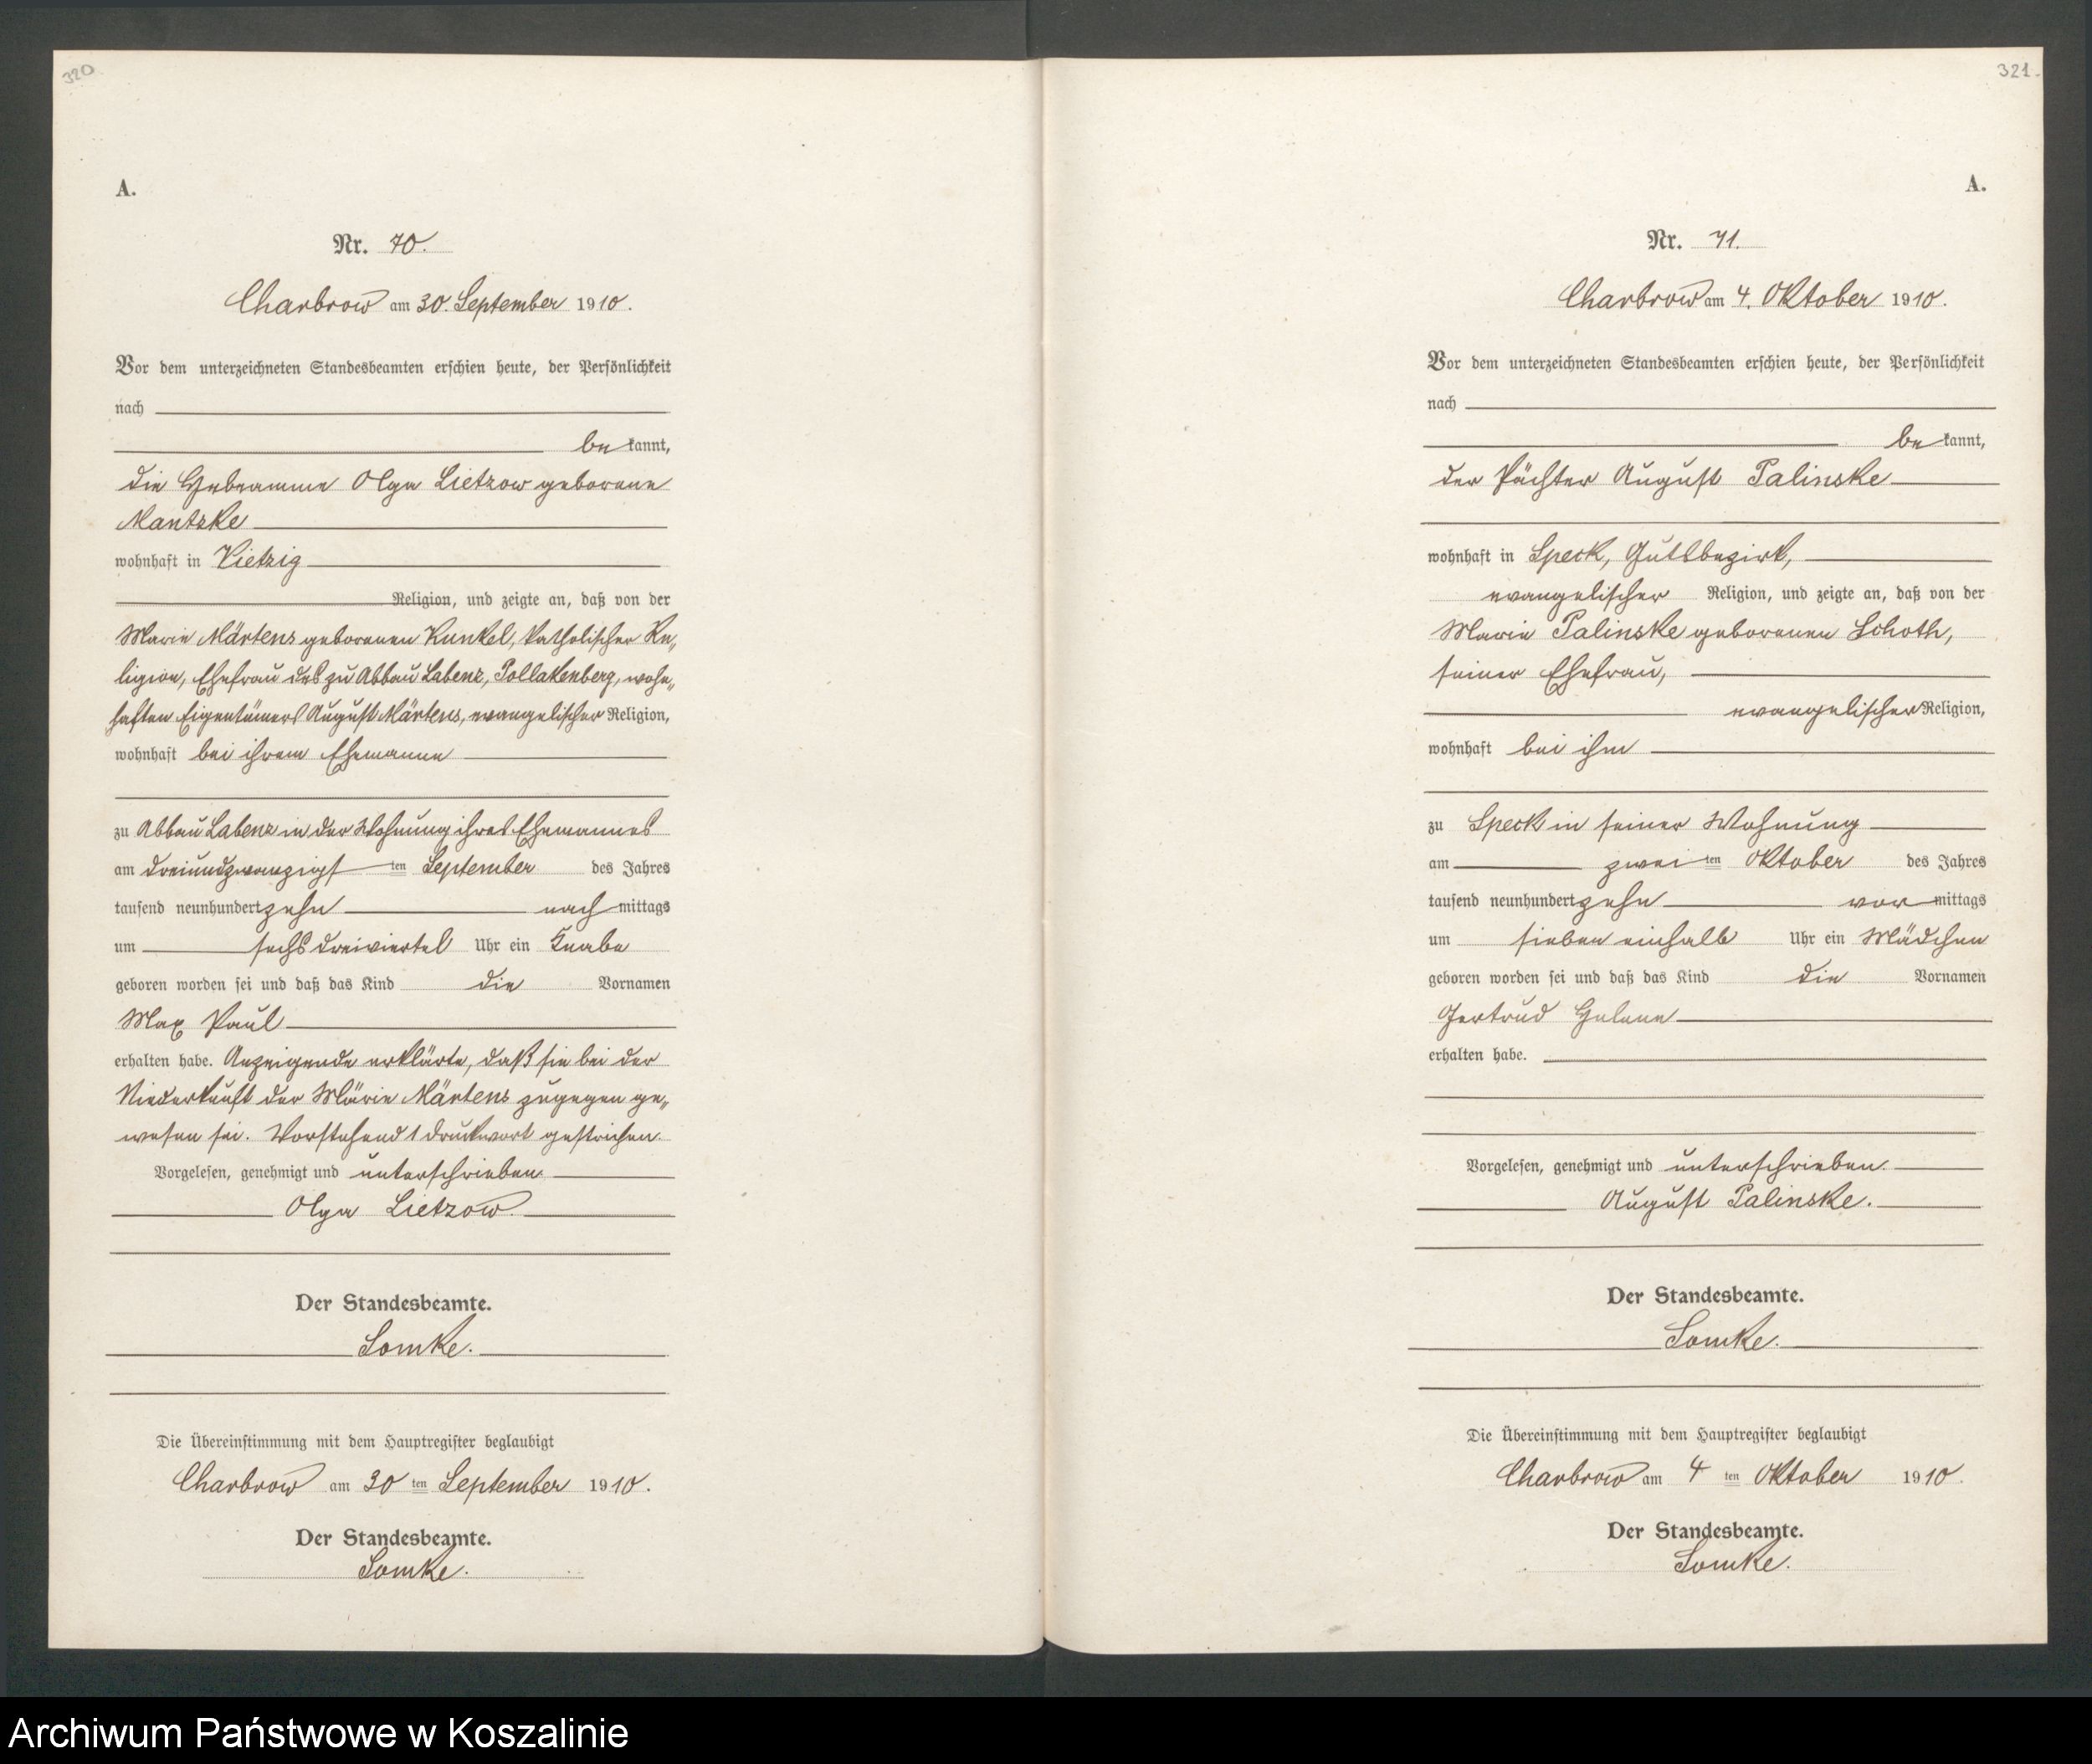 320
A.
Nr. 70.
Charbrow am 30. September 1910.
Vor dem unterzeichneten Standesbeamten erschien heute, der Persönlichkeit
nach
be kannt,
die Hebeamme Olga Lietzow geborene
Mantzke
wohnhaft in Vietzig
Religion, und zeigte an, daß von der
Marie Märtens geborenen Kunkel, katholischer Re„
ligion, Ehefrau des zu Abbau Labenz, Pollakenberg, wohn„
haften Eigentümers August Märtens, evangelischer Religion,
wohnhaft bei ihrem Ehemanne
zu Abbau Labenz in der Wohnung ihres Ehemannes
am dreiundzwanzigst ten September des Jahres
tausend neunhundert zehn nach mittags
um sechs dreiviertel Uhr ein Knabe
geboren worden sei und daß das Kind die Vornamen
Max Paul
erhalten habe. Anzeigende erklärte, daß sie bei der
Niederkunft der Marie Märtens zugegen ge„
wesen sei. Vorstehend 1 Druckwort gestrichen.
Vorgelesen, genehmigt und unterschrieben.
Olga Lietzow.
Der Standesbeamte.
Lomke.
Die Übereinstimmung mit dem Hauptregister beglaubigt
Charbrow am 30 ten September 1910.
Der Standesbeamte.
Lomke.
321.
A.
Nr. 71.
Charbrow am 4. Oktober 1910.
Vor dem unterzeichneten Standesbeamten erschien heute, der Persönlichkeit
nach
be kannt,
der Pächter August Palinske
wohnhaft in Speck, Gutsbezirk,
evangelischer Religion, und zeigte an, daß von der
Marie Palinske geborenen Schoth,
seiner Ehefrau,
evangelischer Religion,
wohnhaft bei ihm
zu Speck in seiner Wohnung
am zwei ten Oktober des Jahres
tausend neunhundert zehn vor mittags
um sieben einhalb Uhr ein Mädchen
geboren worden sei und daß das Kind die Vornamen
Gertrud Helene
erhalten habe.
Vorgelesen, genehmigt und unterschrieben.
August Palinske.
Der Standesbeamte.
Lomke.
Die Übereinstimmung mit dem Hauptregister beglaubigt
Charbrow am 4 ten Oktober 1910.
Der Standesbeamte.
Lomke.
Archiwum Państwowe w Koszalinie